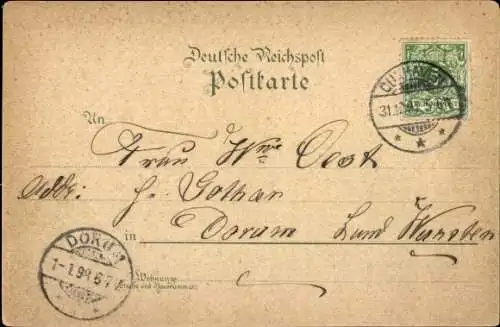 Deutsche Reichspost
Postkarte
CUXHAVEN
31.12.
An
Frau Wwe Oest
Addr: H. Gothar
in Dorum Land Wursten
DORUM
1-1.98.6-7
Wohnung
(Straße und Hausnummer)